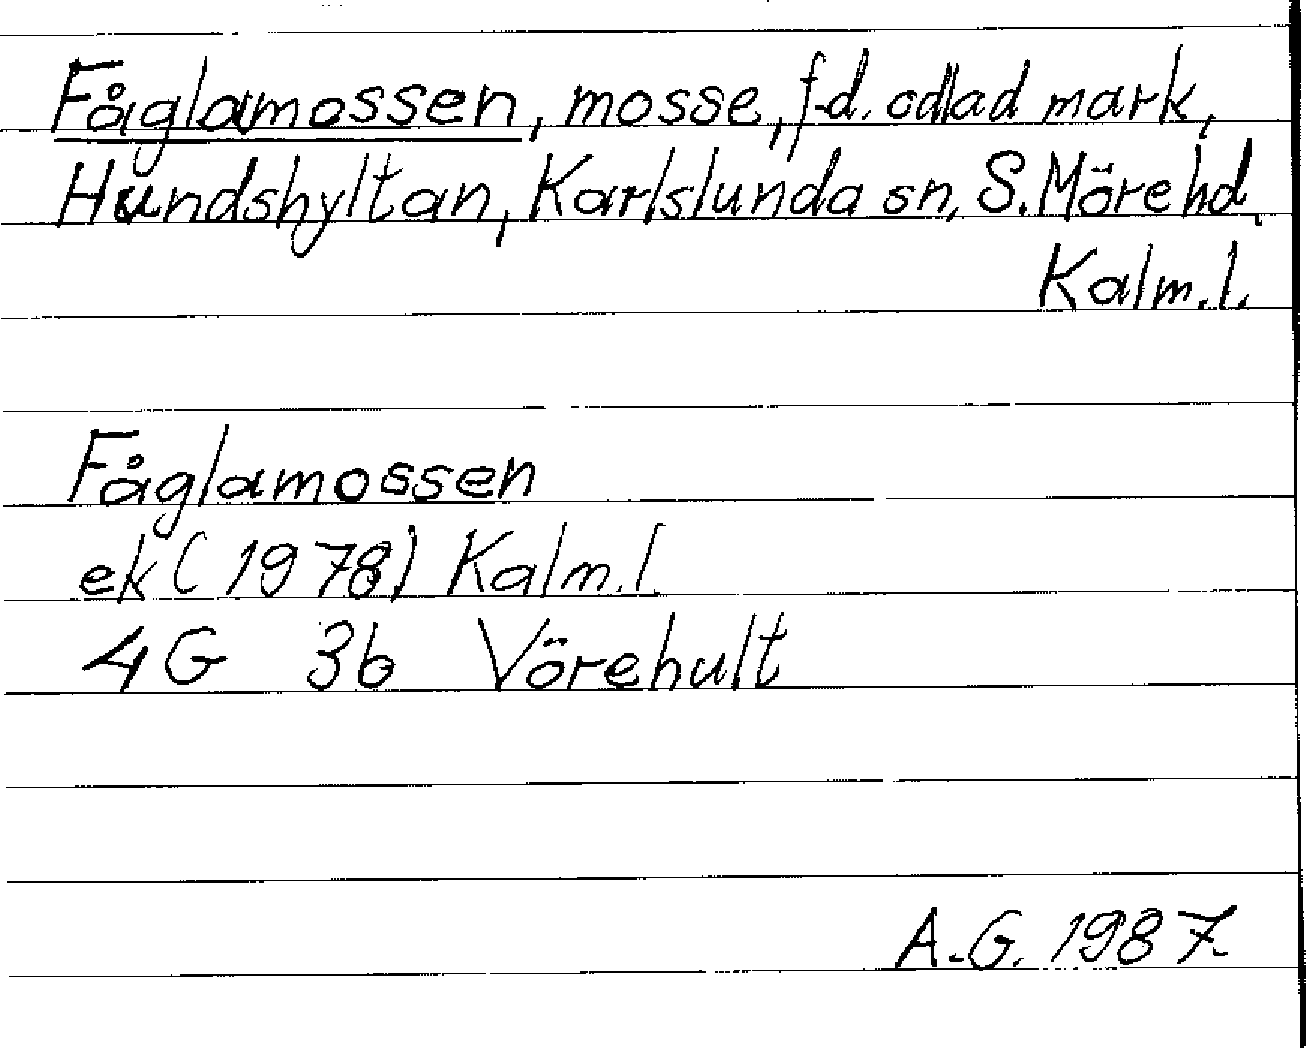 Fåglamossen, mosse, f.d. odlad mark,
Hundshyltan, Karlslunda sn, S. Möre hd.
Kalm. l.
Fåglamossen
ek (1978) Kalm. l.
4G 3b Vörehult
A.G. 1987